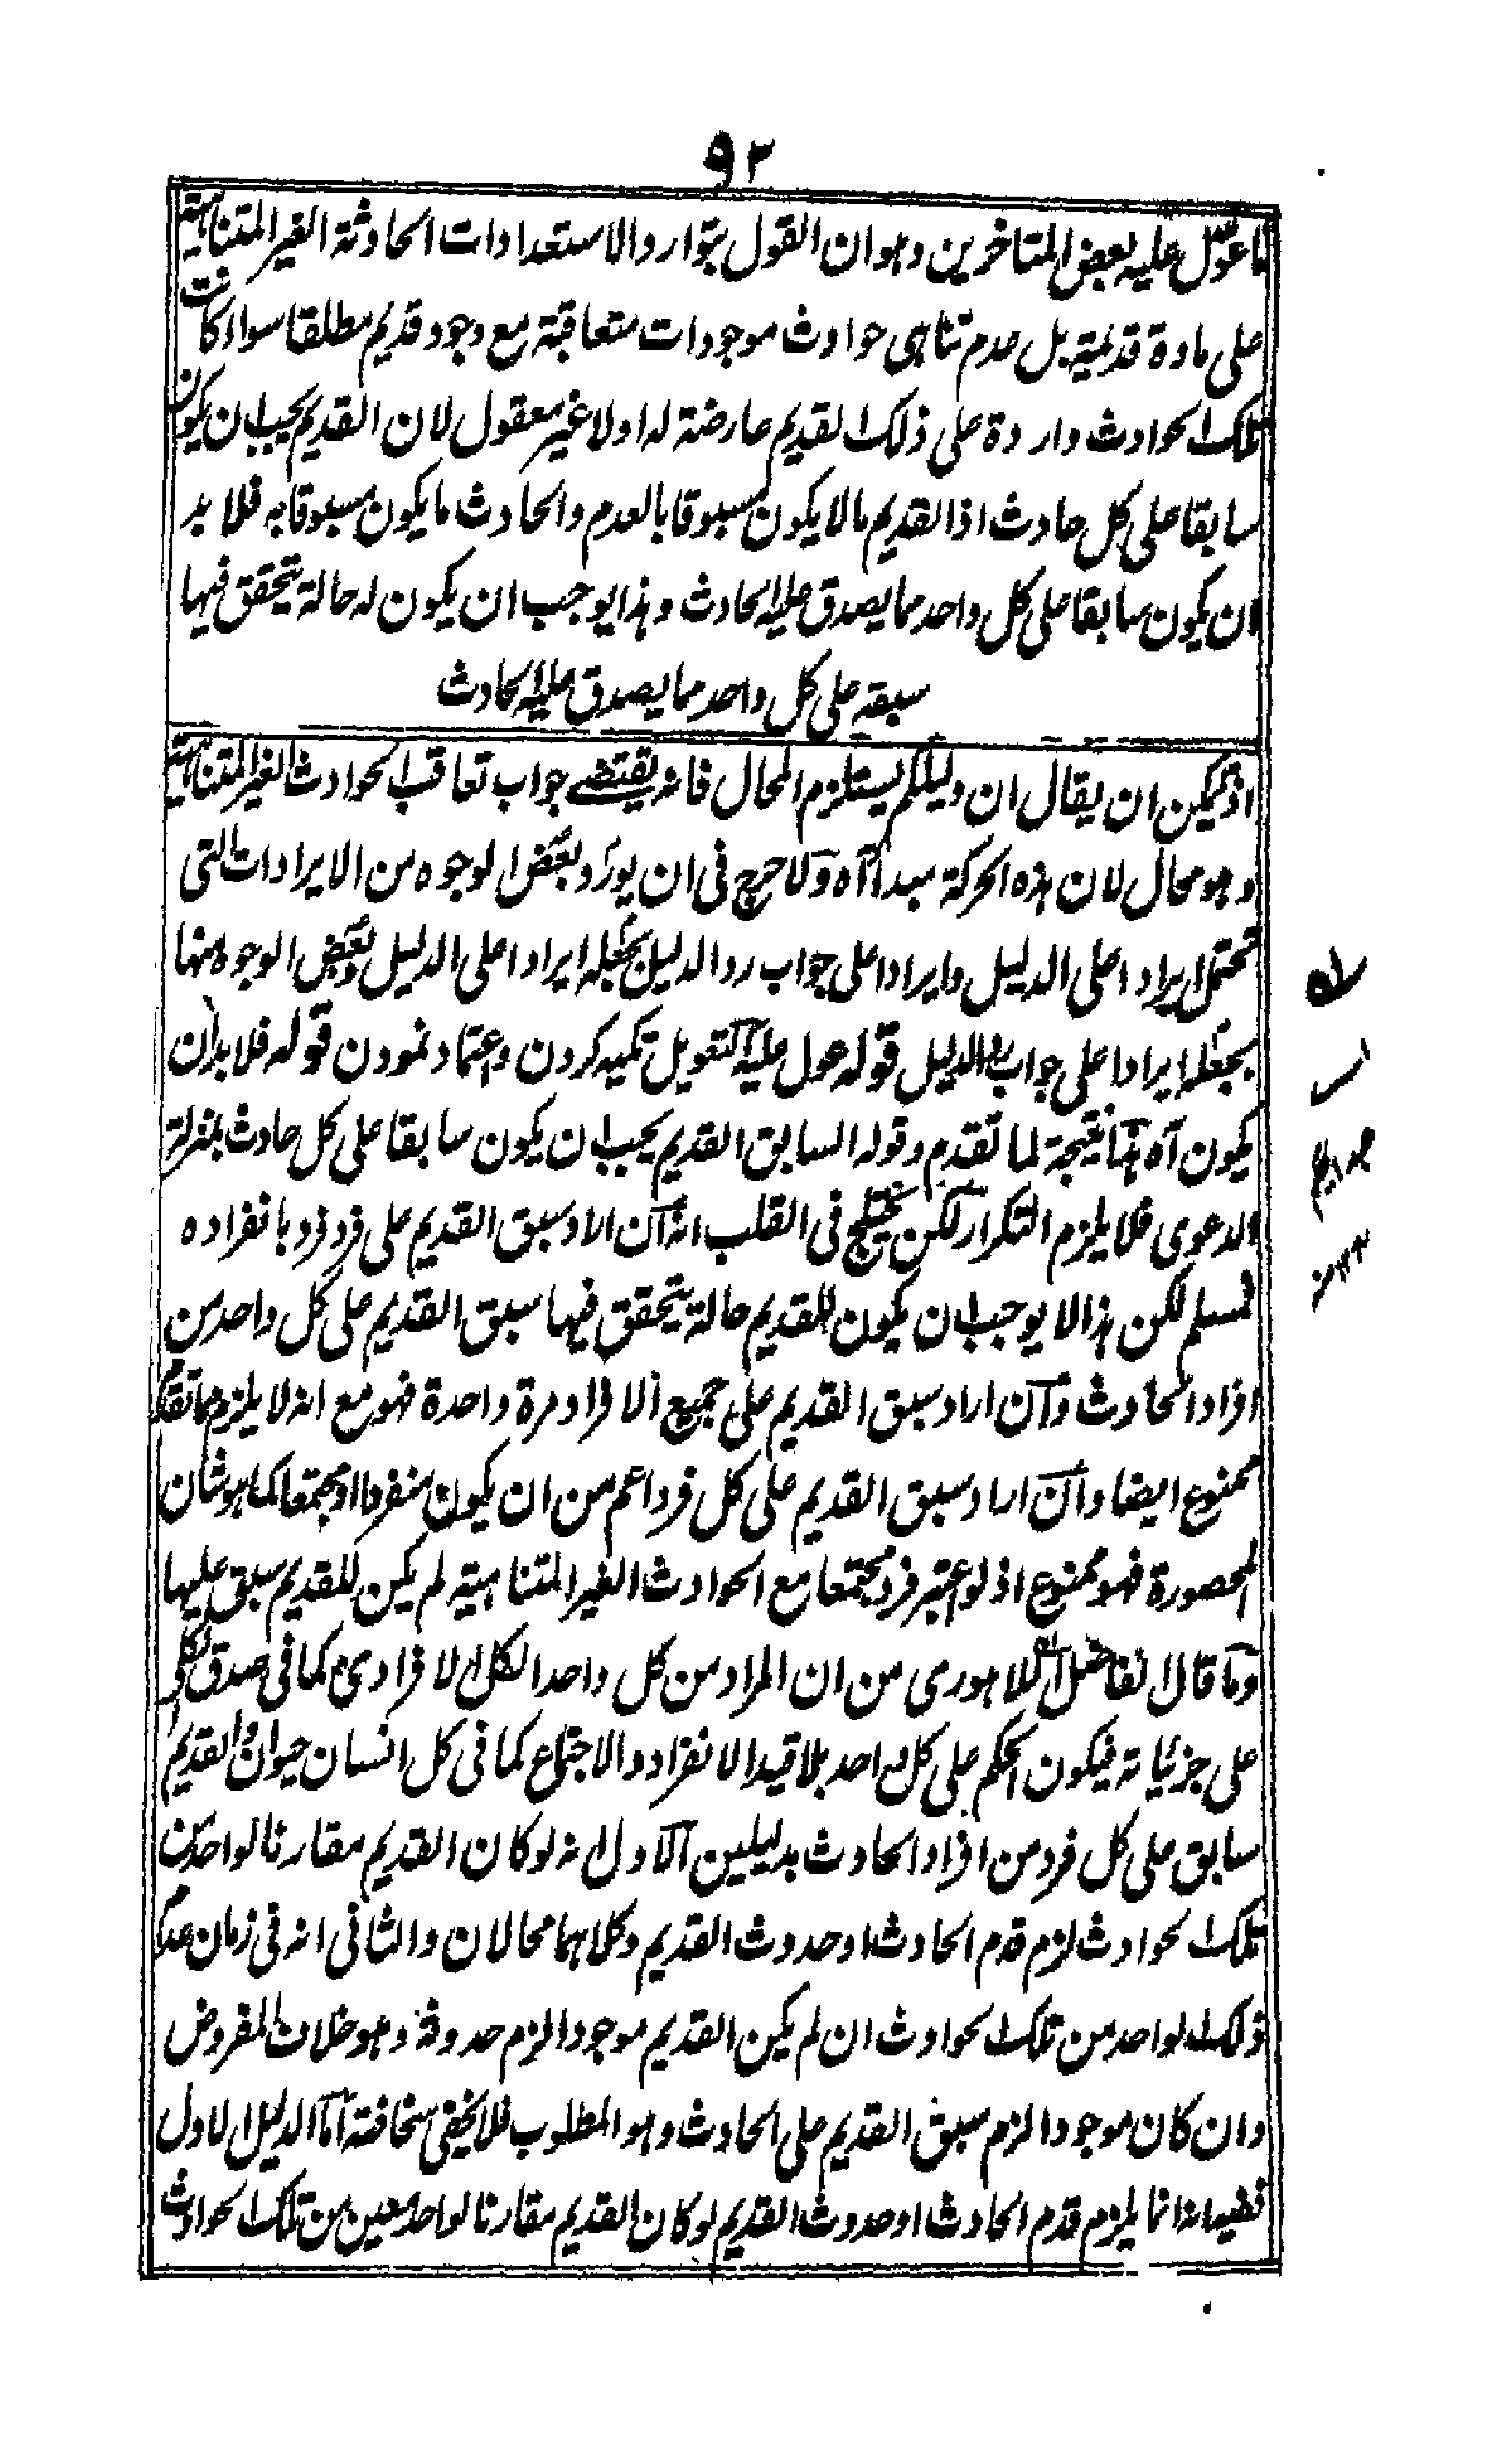 ٩٣
ما عول عليه بعض المتاخرين وهو ان القول بتوارد الاستعدادات الحادثة الغير المتناهية
على مادة قديمة بل عدم تناهى حوادث موجودات متعاقبة مع وجود قديم مطلقا سواء كانت
تلك الحوادث واردة على ذلك القديم عارضة له اولا غير معقول لان القديم يجب ان يكون
سابقا على كل حادث اذ القديم ما لا يكون مسبوقا بالعدم والحادث ما يكون مسبوقا به فلا بد
ان يكون سابقا على كل واحد مما يصدق عليه الحادث وهذا يوجب ان يكون له حالة يتحقق فيها
سبقه على كل واحد مما يصدق عليه الحادث
اذ يمكن ان يقال ان دليلكم يستلزم المحال فانه يقتضى جواب تعاقب الحوادث الغير المتناهية
وهو محال لان هذه الحركة مبدأ آه ولا حرج فى ان يورد بعض الوجوه من الايرادات التى
تحتمل ايرادا على الدليل وايرادا على جواب رد الدليل بجعله ايرادا على الدليل وبعض الوجوه منها
بجعله ايرادا على جواب رد الدليل قوله عول عليه التعويل تكيه كردن واعتماد نمودن قوله فلا بد ان
يكون آه هذا نتيجة لما تقدم وقوله السابق القديم يجب ان يكون سابقا على كل حادث بمنزلة
الدعوى فلا يلزم التكرار لكن يختلج فى القلب انه ان اراد سبق القديم على فرد فرد بانفراده
فمسلم لكن هذا لا يوجب ان يكون للقديم حالة يتحقق فيها سبق القديم على كل واحد من
افراد الحادث وان اراد سبق القديم على جميع الافراد مرة واحدة فهو مع انه لا يلزم مما تقدم
ممنوع ايضا وان اراد سبق القديم على كل فرد اعم من ان يكون منفردا او مجتمعا كما هو شان
المحصورة فهو ممنوع اذ لو اعتبر فرد مجتمعا مع الحوادث الغير المتناهية لم يكن للقديم سبق عليها
وما قال الفاضل اللاهورى من ان المراد من كل واحد الكل الافرادى كما فى صدق الكلى
على جزئياته فيكون الحكم على كل واحد بلا قيد الانفراد والاجتماع كما فى كل انسان حيوان والقديم
سابق على كل فرد من افراد الحادث بدليلين الاول انه لو كان القديم مقارنا لواحد من
تلك الحوادث لزم قدم الحادث او حدوث القديم وكلاهما محالان والثانى انه فى زمان عدم
ذلك الواحد من تلك الحوادث ان لم يكن القديم موجودا لزم حدوثه وهو خلاف المفروض
وان كان موجودا لزم سبق القديم على الحادث وهو المطلوب فلا يخفى سخافته اما الدليل الاول
ففيه انه انما يلزم قدم الحادث او حدوث القديم لو كان القديم مقارنا لواحد معين من تلك الحوادث